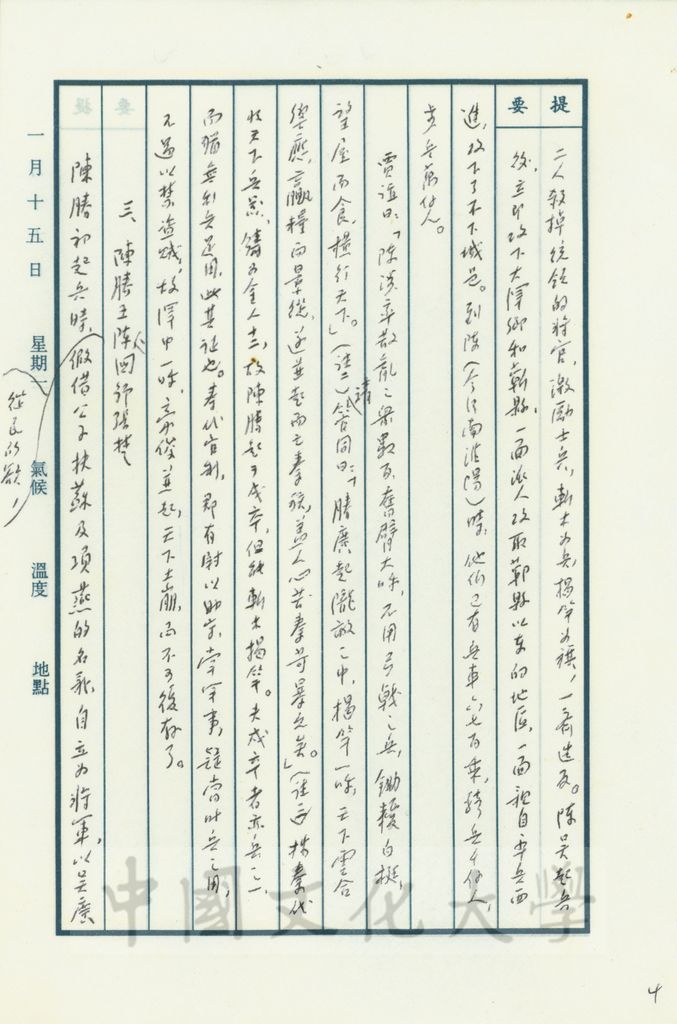 提要
二人殺掉統領的將官，激勵士兵，斬木為兵，揭竿為旗，一齊造反。陳吳起兵
後，立即攻下大澤鄉和蘄縣，一面派人攻取蘄縣以東的地區，一面親自率兵西
進，攻下了不下城邑。到陳（今河南淮陽）時，他們已有兵車六七百乘，騎兵千餘人，
步兵萬餘人。
賈誼曰：「陳涉率散亂之眾數百，奮臂大呼，不用弓戟之兵，鋤耰白梃，
望屋而食，橫行天下。」（註二）
曰：「勝廣起隴畝之中，揭竿一呼，天下雲合
響應，贏糧而景從，遂並起而亡秦族，蓋人心苦秦苛暴久矣。」（註三）按秦代
收天下兵器，鑄為金人十二，故陳勝起於戍卒，但能斬木揭竿。夫戍卒者亦兵之一，
而猶無利兵足用，此其証也。秦代官制，郡有尉以助守，掌軍事，疑當時兵之用，
不過以禁盜賊，故澤中一呼，豪俊並起，天下土崩，而不可復存了。
三、陳勝王陳，國號張楚
陳勝初起兵時，假借公子扶蘇及項燕的名義，自立為將軍，以吳廣
從民所欲，
一月十五日 星期一 氣候 溫度 地點
中國文化大學
4